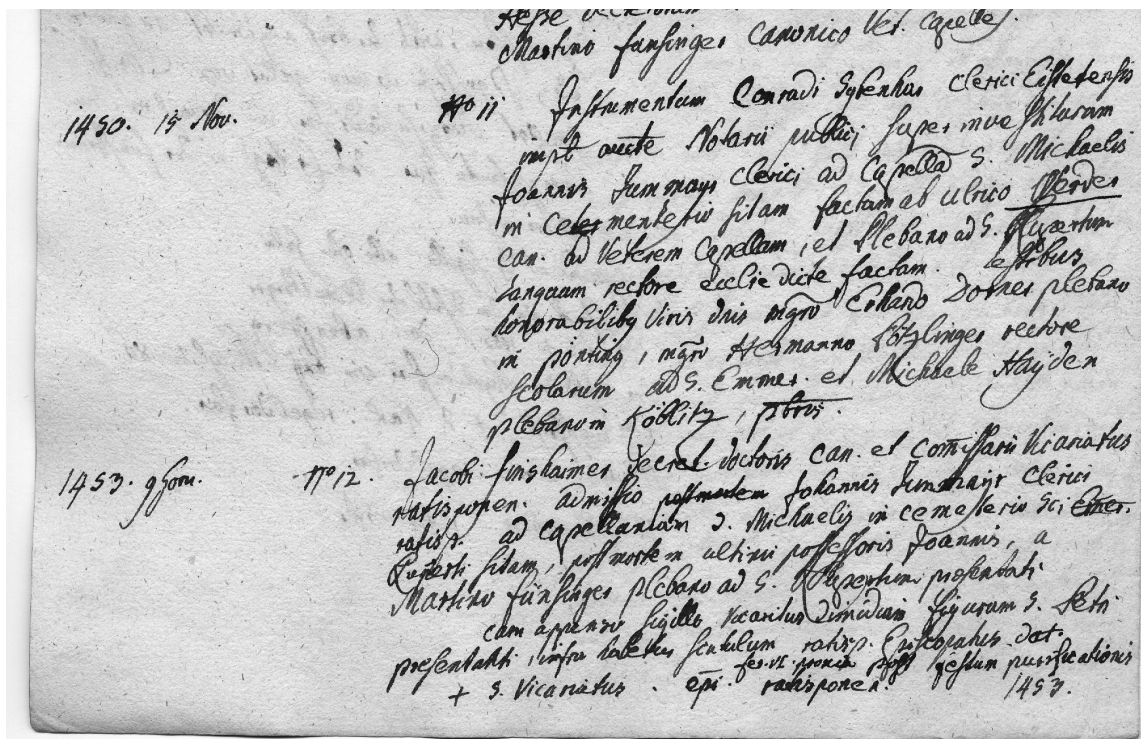 Martino funfinger canonico Vet. Capelle.
1450. 15 Nov. No 11 Instrumentum Conradi Sybenhar clerici Eistetensis
impl aucte Notarii publici super investituram
Joannis Summayr clerici ad Capellā S. Michaelis
in ceterio sitam factam ab ulrico Werder
can. ad Veterem Capellam, et Plebano ad S. Rupertum
tanquam rectore ecclie dicte factam. testibus
honorabiliby Viris dnis mgro Erhardo Dorner plebano
in pónting, mgro Hermanno Pötzlinger rectore
scolarum ad S. Emmer. et Michaele Haÿden
plebano in Köblitz, pbris.
1453. 9 Horn. No 12. Jacobi finshaimer decret. doctoris can. et comissarii Vicariatus
ratisponen. admissio post mortem Johannis Summayr clerici
ratisp. ad capellaniam S. Michaelis in cemeterio Sci Emer.
Ruperti sitam, post mortem ultimi possessoris Joannis, a
Martino fünfinger plebano ad S. Rupertum presentati
cum appenso sigillo Vicaritus dimidiam figuram S. Petri
presentanti, infra habetur scutulum ratisp. Episcopatus. dat.
fer. VI. proxia post festum purificationis
+ S. Vicariatus. epi. ratisponen. 1453.